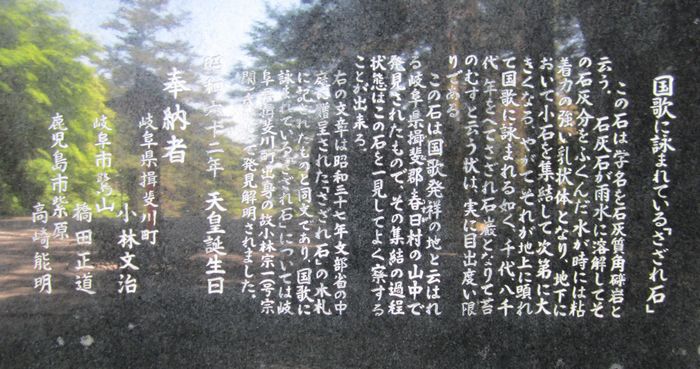 国歌に詠まれている「さざれ石」
この石は(学名を石灰質角砕岩と
云う。石灰石が雨水に溶解してそ
の石灰分をふくんだ水が時には粘
着力の強い乳状体となり、地下に
おいて小石を集結して次第に大
きくなる。やがてそれが地上に顕れ
て国歌に詠まれる如く、千代八千
代年をへてさざれ石、巌となりて苔
のむすと云う状は、実に目出度い限
りである。
この石は国歌発祥の地と云はれ
る岐阜県揖斐郡春日村の山中で
発見されたもので、その集結の過程
状態はこの石を一見してよく察する
ことが出来る。
右の文章は昭和三十七年文部省の中
庭に贈呈された「さざれ石」の木札
に記されたものと同文であり、国歌に
詠まれている「さざれ石」については岐
阜県揖斐川町出身の故小林宗一号宗
閑氏によって発見解明されました。
昭和六十二年 天皇誕生日
奉納者
岐阜県揖斐川町
小林文治
岐阜市鷺山
橋田正道
鹿児島市紫原
高崎能明